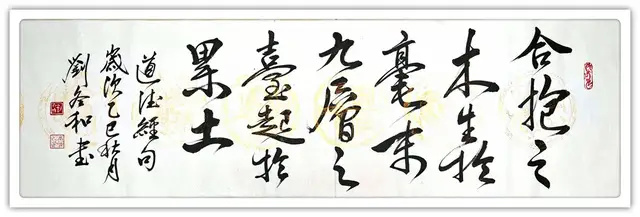 合抱之
木生於
毫末
九層之
臺起於
累土
道德經句
歲次乙巳秋月
劉和書